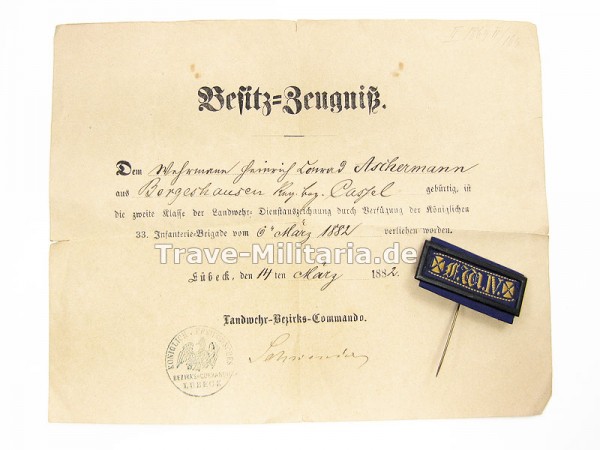 Besitz=Zeugniß.
Dem Wehrmann Heinrich Conrad Aschermann
aus Borgeshausen Reg. bez. Cassel gebürtig, ist
die zweite Klasse der Landwehr-Dienstauszeichnung durch Verfügung der Königlichen
33. Infanterie-Brigade vom 6t März 1882 verliehen worden.
Trave-Militaria.de
Lübeck, den 14 ten März 1882.
F.W.IV.
Landwehr-Bezirks-Commando.
BEZIRKS-COMMANDO
LÜBECK